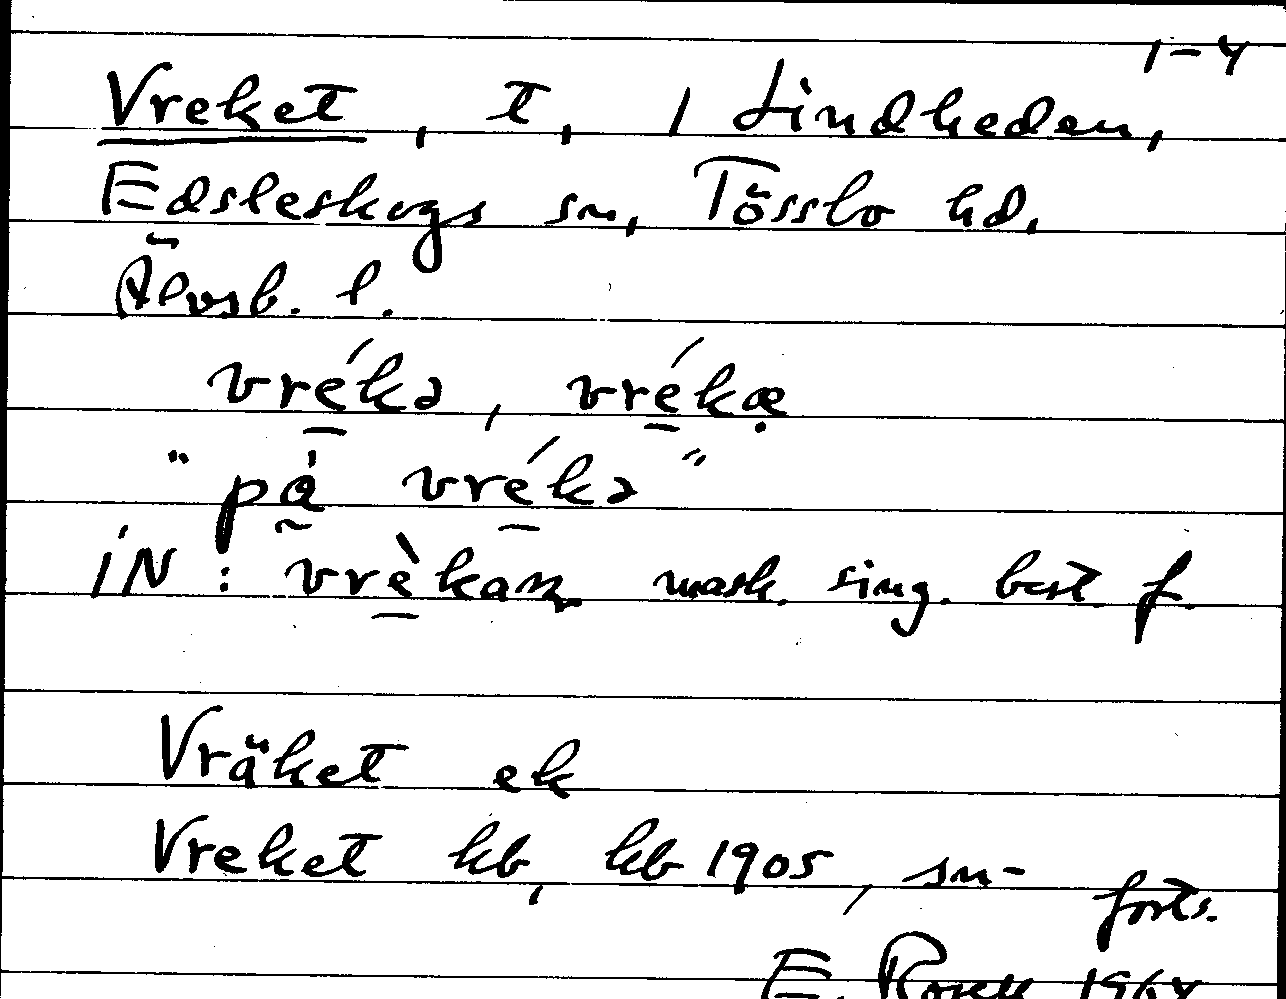 1-4
Vreket, t, / Lindheden,
Edsleskogs sn, Tössbo hd.
Älvsb. l.
vréka, vrékæ
"på vréka"
iN: vrèkan mask. sing. best f.
Vräket ek
Vreket kb, kb 1905, sn-
forts.
E. 1964